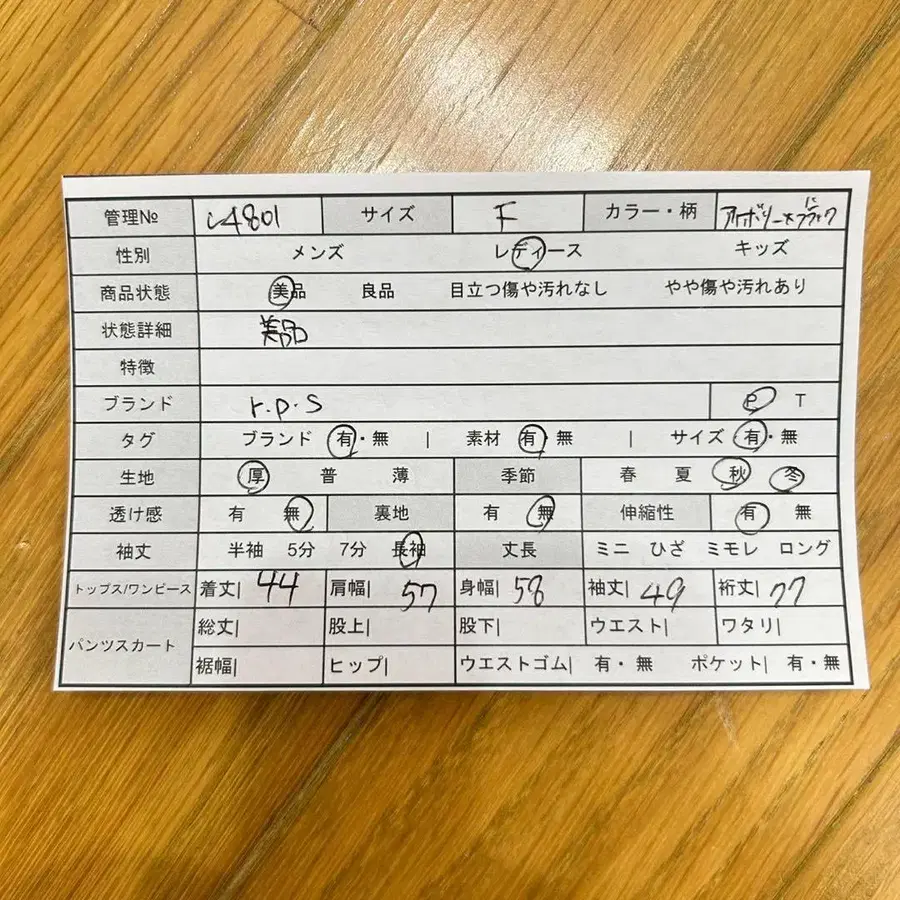 管理№ い4801 サイズ F カラー・柄 アイボリー×ブラック
性別 メンズ レディース キッズ
商品状態 美品 良品 目立つ傷や汚れなし やや傷や汚れあり
状態詳細 美品
特徴
ブランド r.p.s P T
タグ ブランド 有・無 | 素材 有・無 | サイズ 有・無
生地 厚 普 薄 季節 春 夏 秋 冬
透け感 有 無 裏地 有 無 伸縮性 有 無
袖丈 半袖 5分 7分 長袖 丈長 ミニ ひざ ミモレ ロング
トップス/ワンピース 着丈| 44 肩幅| 57 身幅| 58 袖丈| 49 裄丈| 77
パンツスカート 総丈| 股上| 股下| ウエスト| ワタリ|
裾幅| ヒップ| ウエストゴム| 有・無 ポケット| 有・無